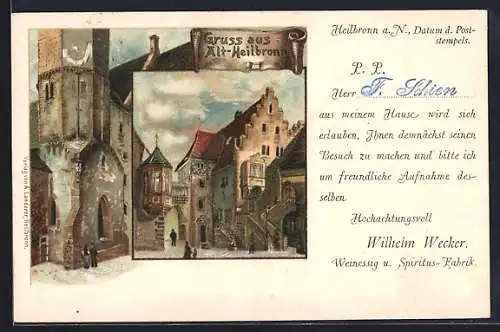 Gruss aus
Alt-Heilbronn
Heilbronn a. N., Datum d. Post-
stempels.
P. P.
Herr F. Schien
aus meinem Hause wird sich
erlauben, Ihnen demnächst seinen
Besuch zu machen und bitte ich
um freundliche Aufnahme des-
selben.
Hochachtungsvoll
Wilhelm Wecker.
Weinessig u. Spiritus-Fabrik.
Verlag von A. Landerer, Heilbronn.